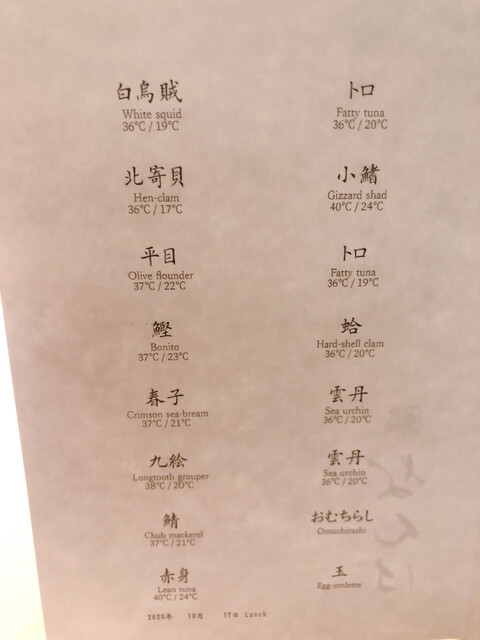 白烏賊
White squid
36°C / 19°C
北寄貝
Hen-clam
36°C / 17°C
平目
Olive flounder
37°C / 22°C
鰹
Bonito
37°C / 23°C
春子
Crimson sea-bream
37°C / 21°C
九絵
Longtooth grouper
38°C / 20°C
鯖
Chub mackerel
37°C / 21°C
赤身
Lean tuna
40°C / 24°C
トロ
Fatty tuna
36°C / 20°C
小鰭
Gizzard shad
40°C / 24°C
トロ
Fatty tuna
36°C / 19°C
蛤
Hard-shell clam
36°C / 20°C
雲丹
Sea urchin
36°C / 20°C
雲丹
Sea urchin
36°C / 20°C
おむちらし
Omuchirashi
玉
Egg-omlette
10月 17日 Lunch
なんば